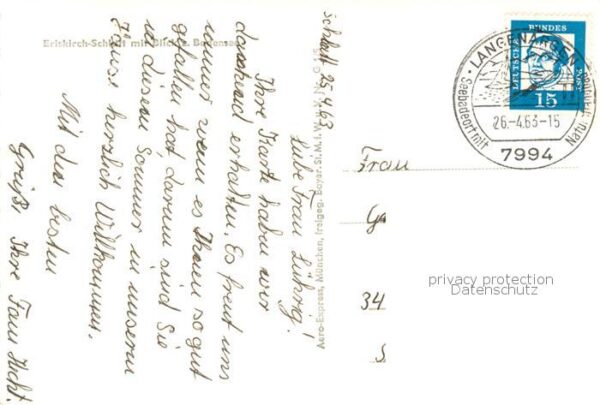 Eriskirch-Schlatt mit Blick z. Bodensee
Schlatt 25.4.63
Liebe Frau Lührig!
Ihre Karte haben wir
dankend erhalten. Es freut uns
immer wenn es Ihnen so gut
gefallen hat, darum sind Sie
in diesem Sommer in unserem
Hause herzlich Willkommen.
Mit den besten
Grüße Ihre Fam
Aero-Express, München, freigeg. Bayer. St. M. f. W. u. V. Nr. G
Frau
34
LANGENARGEN
Seebadeort mit
26.-4.63-15
7994
DEUTSCHE
BUNDES
POST
15
privacy protection
Datenschutz